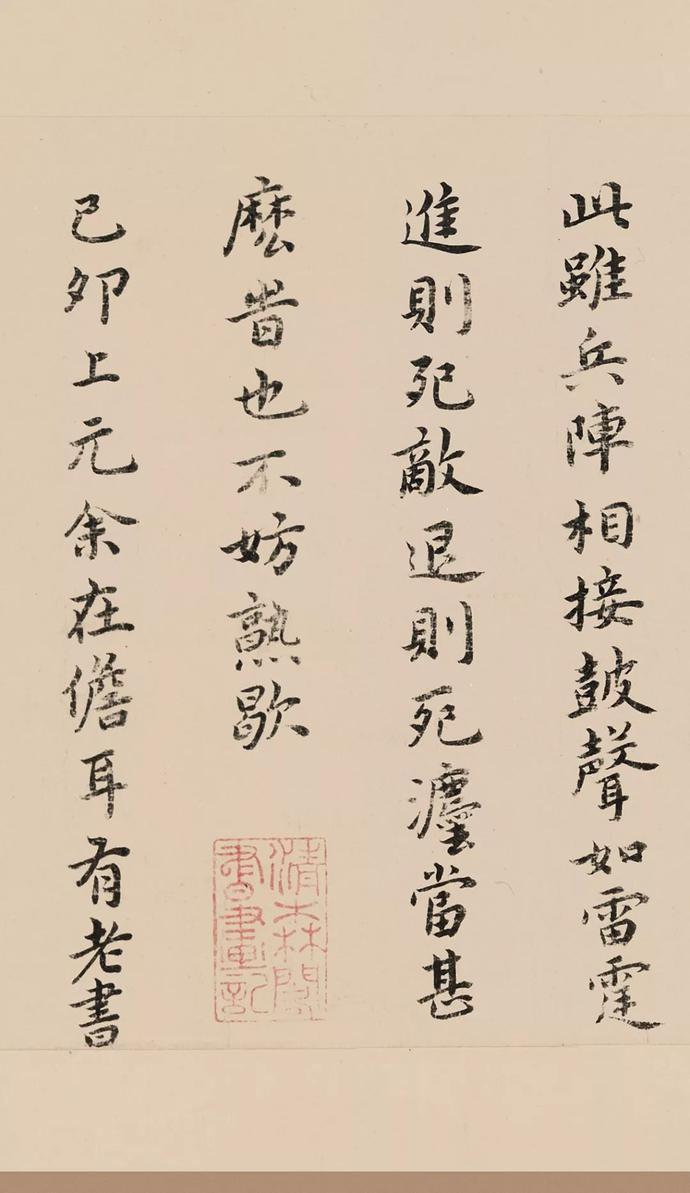 此雖兵陣相接皷聲如雷霆
進則死敵退則死灋當甚
麽旹也不妨熟歇
清森閣
書畫記
己卯上元余在儋耳有老書